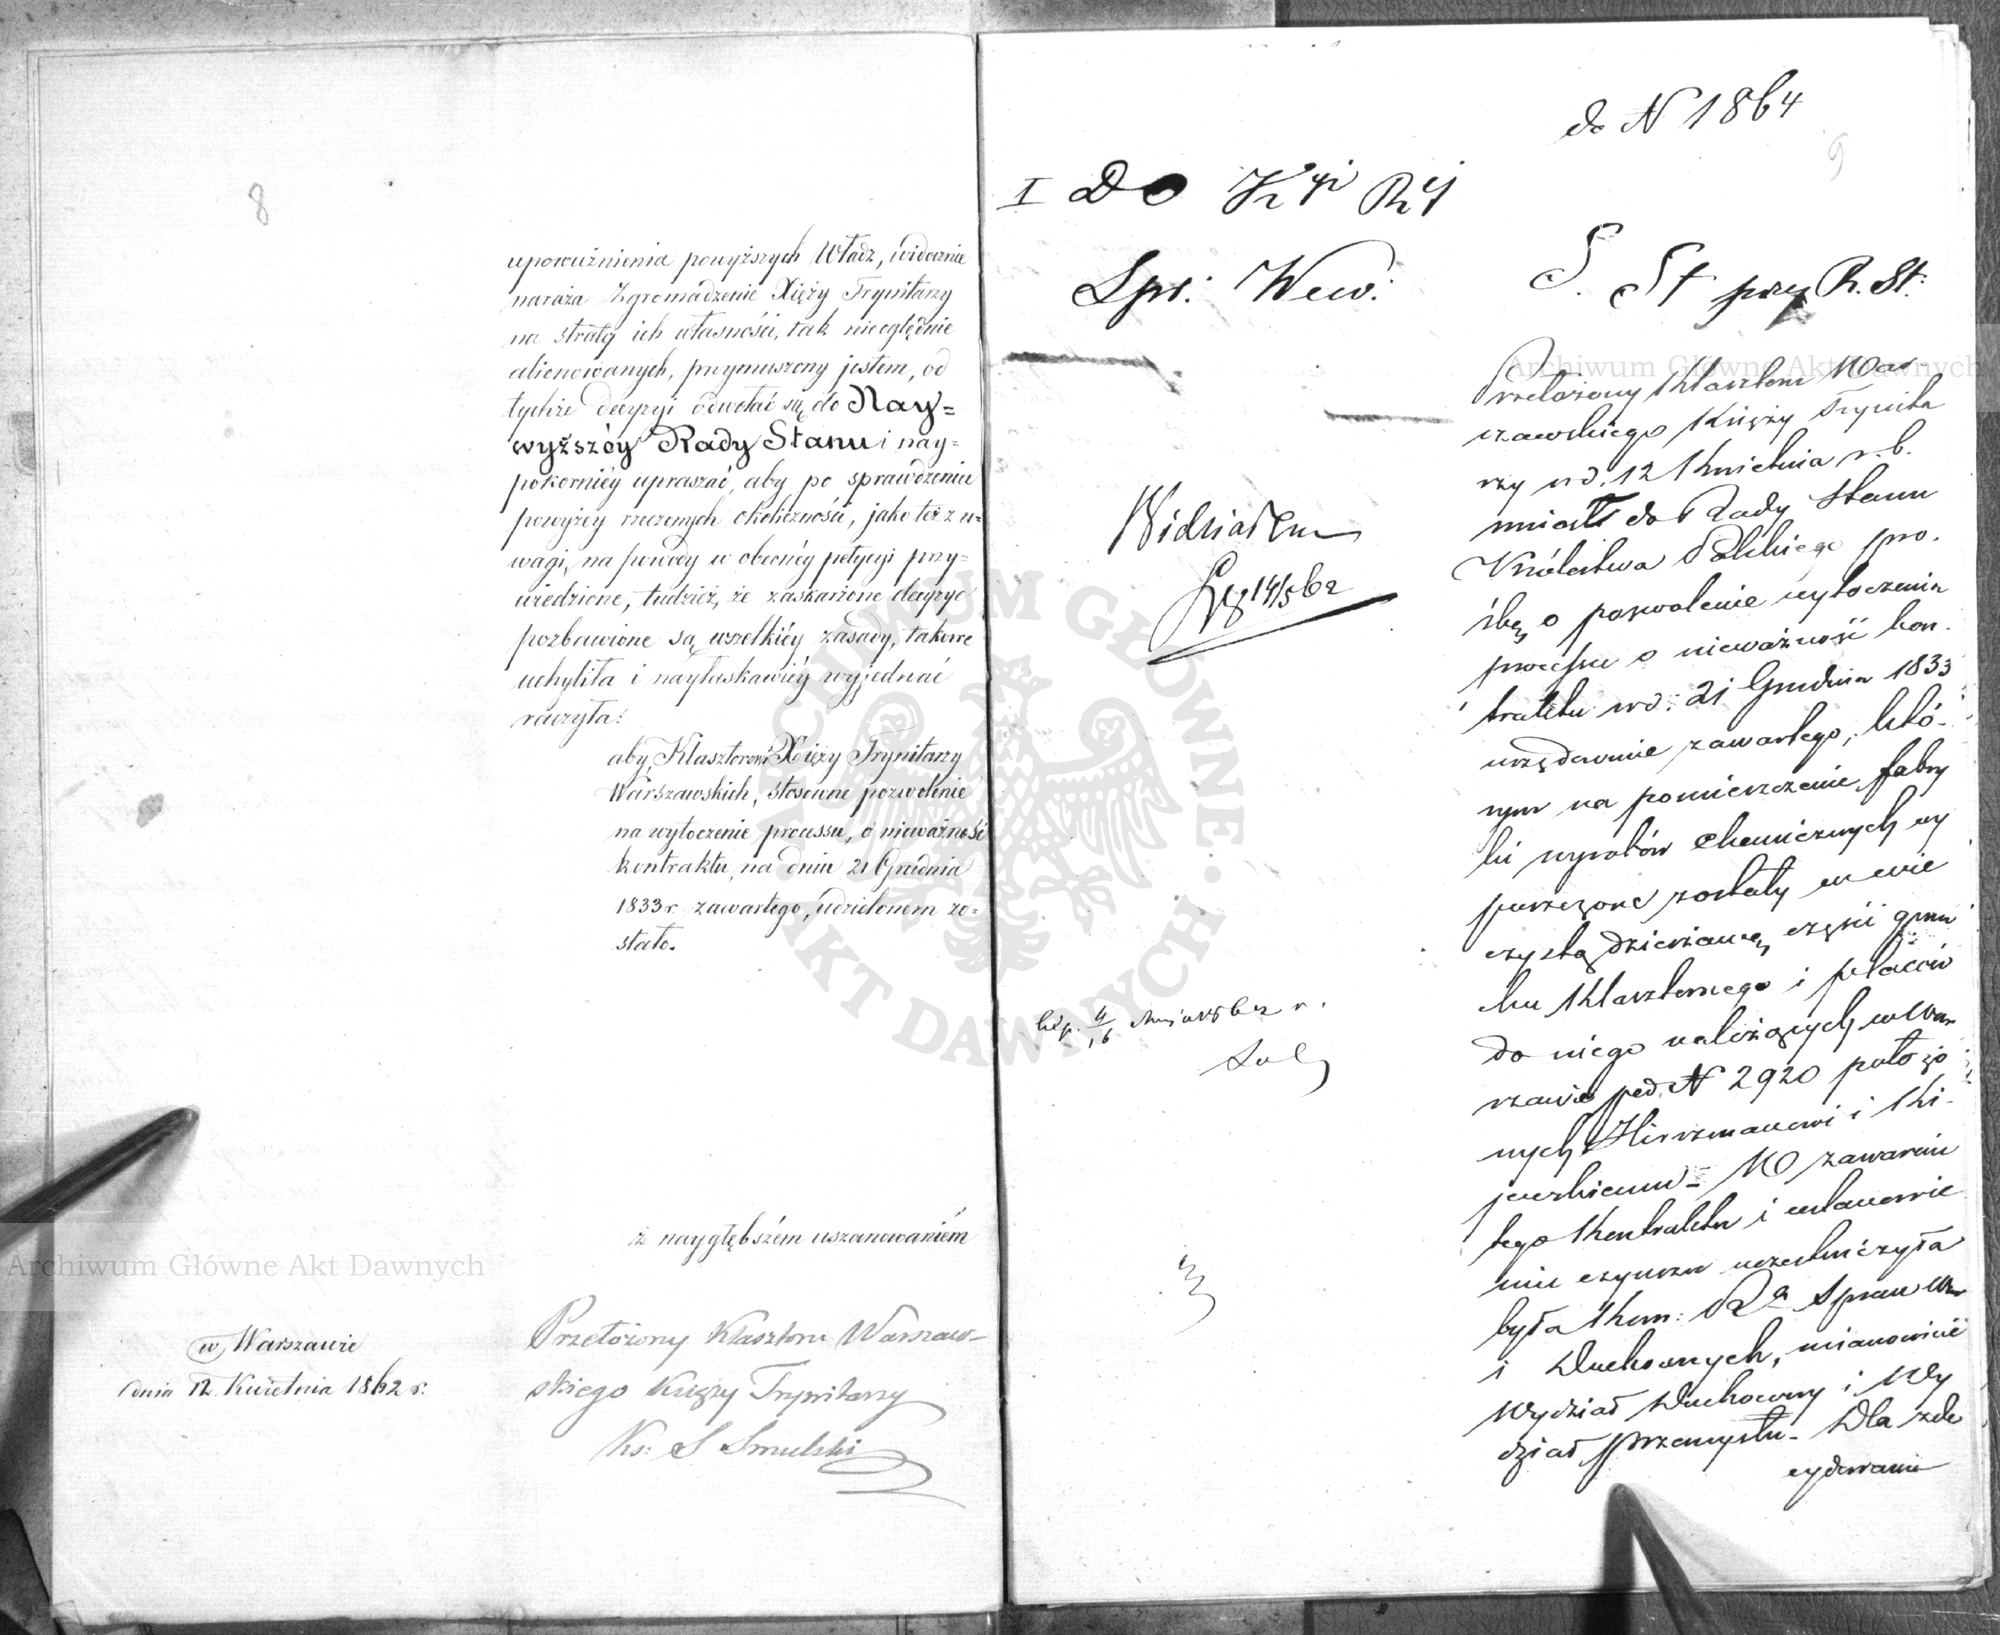 8
upoważnienia powyższych Władz, widocznie
naraża Zgromadzenie Xięży Trynitarzy
na stratę ich własności, tak nieoględnie
alienowanych, przymuszony jestem, od
tychże decyzyi odwołać się do Nay=
wyższéy Rady Stanu i nay=
pokorniéy upraszać, aby po sprawdzeniu
powyżéy rzeczonych okoliczności, jako też z u=
wagi, na powody w obecnéy petycyi przy=
wiedzione, tudzież, że zaskarżone decyzye
pozbawione są wszelkiéy zasady, takowe
uchyliła i nayłaskawiéy wyjednać
raczyła:
aby, Klasztorowi Xięży Trynitarzy
Warszawskich, stosowne pozwolenie
na wytoczenie processu, o nieważność
kontraktu, na dniu 21 Grudnia
1833 r. zawartego, udzielonem zo=
stało.
z naygłębszém uszanowaniém
w Warszawie
dnia 12 Kwietnia 1862 r.
Przełożony Klasztoru Warszaw-
skiego Księży Trynitarzy
Ks: S Smulski
do N 1864
9
I Do Kyi Réj
Spr: Wew:
S. St przy R. St:
Widziałem
14/5 62
Przełożony Klasztoru War-
szawskiego Księży Trynita
rzy w d. 12 Kwietnia r. b.
wniósł do Rady Stanu
Królestwa Polskiego pro-
śbę o pozwolenie wytoczenia
processu o nieważność kon-
traktu w d: 21 Grudnia 1833
urzędownie zawartego, któ-
rym na pomieszczenie fabry
ki wyrobów chemicznych wy
puszczone zostały w wie
czystą dzierżawę części grun
tu Klasztornego i placów
do niego należących w War
szawie pod N 2920 położo
nych Hirszmanowi i Ki-
jewskiemu - W zawarciu
tego Kontraktu i ustanowie
niu czynszu uczestniczyła
była Kom: Ra Spraw Wew
i Duchownych, mianowicie
Wydział Duchowny i Wy
dział Przemysłu - Dla zde
cydowania
Archiwum Główne Akt Dawnych
Archiwum Główne Akt Dawnych
ARCHIWUM GŁÓWNE AKT DAWNYCH